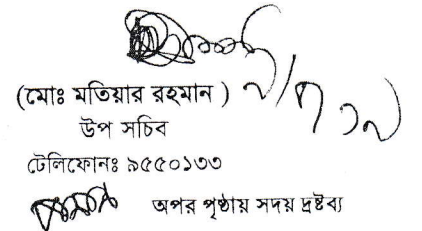 (মোঃ মতিয়ার রহমান )
উপ সচিব
টেলিফোনঃ ৯৫৫০১৩৩
অপর পৃষ্ঠায় সদয় দ্রষ্টব্য